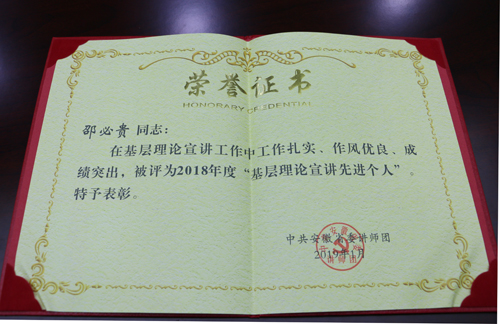 荣誉证书
HONORARY CREDENTIAL
邵必贵 同志：
在基层理论宣讲工作中工作扎实、作风优良、成
绩突出，被评为2018年度“基层理论宣讲先进个人”。
特予表彰。
中共安徽省委讲师团
2019年1月